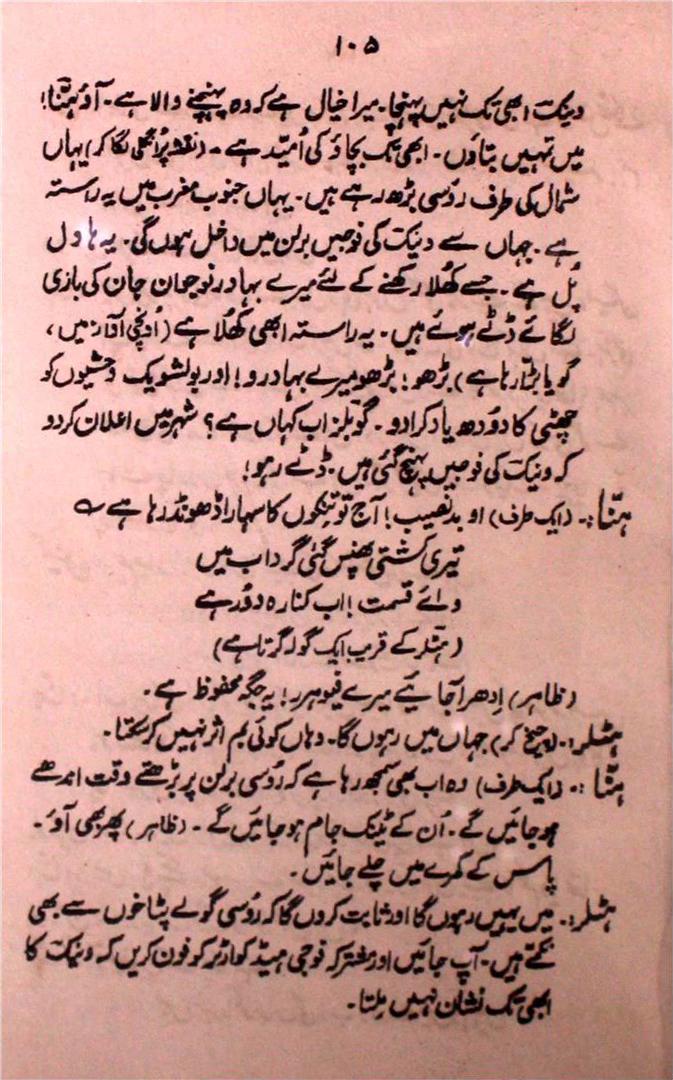 ۱۰۵
دنیکٹ ابھی تک نہیں پہنچا۔ میرا خیال ہے کہ وہ پہنچنے والا ہے۔ آؤ ہنّا!
میں تمہیں بتاؤں۔ ابھی تک بچاؤ کی اُمیّد ہے۔ (نقشہ پر انگلی لگا کر) یہاں
شمال کی طرف رُوسی بڑھ رہے ہیں۔ یہاں جنوب مغرب میں یہ راستہ
ہے۔ جہاں سے دنیکٹ کی فوجیں برلن میں داخل ہوں گی۔ یہ ہاول
پُل ہے۔ جسے کھُلا رکھنے کے لئے میرے بہادر نوجوان جان کی بازی
لگائے ڈٹے ہوئے ہیں۔ یہ راستہ ابھی کھُلا ہے (اُونچی آواز میں،
گویا بڑّا رہا ہے) بڑھو! بڑھو میرے بہادرو! اور بولشویک وحشیوں کو
چھٹی کا دُودھ یاد کرا دو۔ گوبلز اب کہاں ہے؟ شہر میں اعلان کر دو
کہ ونیکٹ کی فوجیں پہنچ گئی ہیں۔ ڈٹے رہو!
ہنّا:۔ (ایک طرف) او بدنصیب! آج تو تنکوں کا سہارا ڈھونڈ رہا ہے ؎
تیری کشتی پھنس گئی گرداب میں
وائے قسمت! اب کنارہ دُور ہے
(ہٹلر کے قریب ایک گولہ گرتا ہے)
(ظاہر) اِدھر آ جائیے میرے فیوہرر! یہ جگہ محفوظ ہے۔
ہٹلر:۔ (چیخ کر) جہاں میں رہوں گا۔ وہاں کوئی بم اثر نہیں کر سکتا۔
ہنّا:۔ (ایک طرف) وہ اب بھی سمجھ رہا ہے کہ رُوسی برلن پر بڑھتے وقت اندھے
ہو جائیں گے۔ اُن کے ٹینک جام ہو جائیں گے۔ (ظاہر) پھر بھی آؤ۔
پاس کے کمرے میں چلے جائیں۔
ہٹلر:۔ میں یہیں رہوں گا اور ثابت کروں گا کہ رُوسی گولے پٹاخوں سے بھی
نکمّے ہیں۔ آپ جائیں اور بختر کہ فوجی ہیڈ کوارٹر کو فون کریں کہ ونیکٹ کا
ابھی تک نشان نہیں مِلتا۔